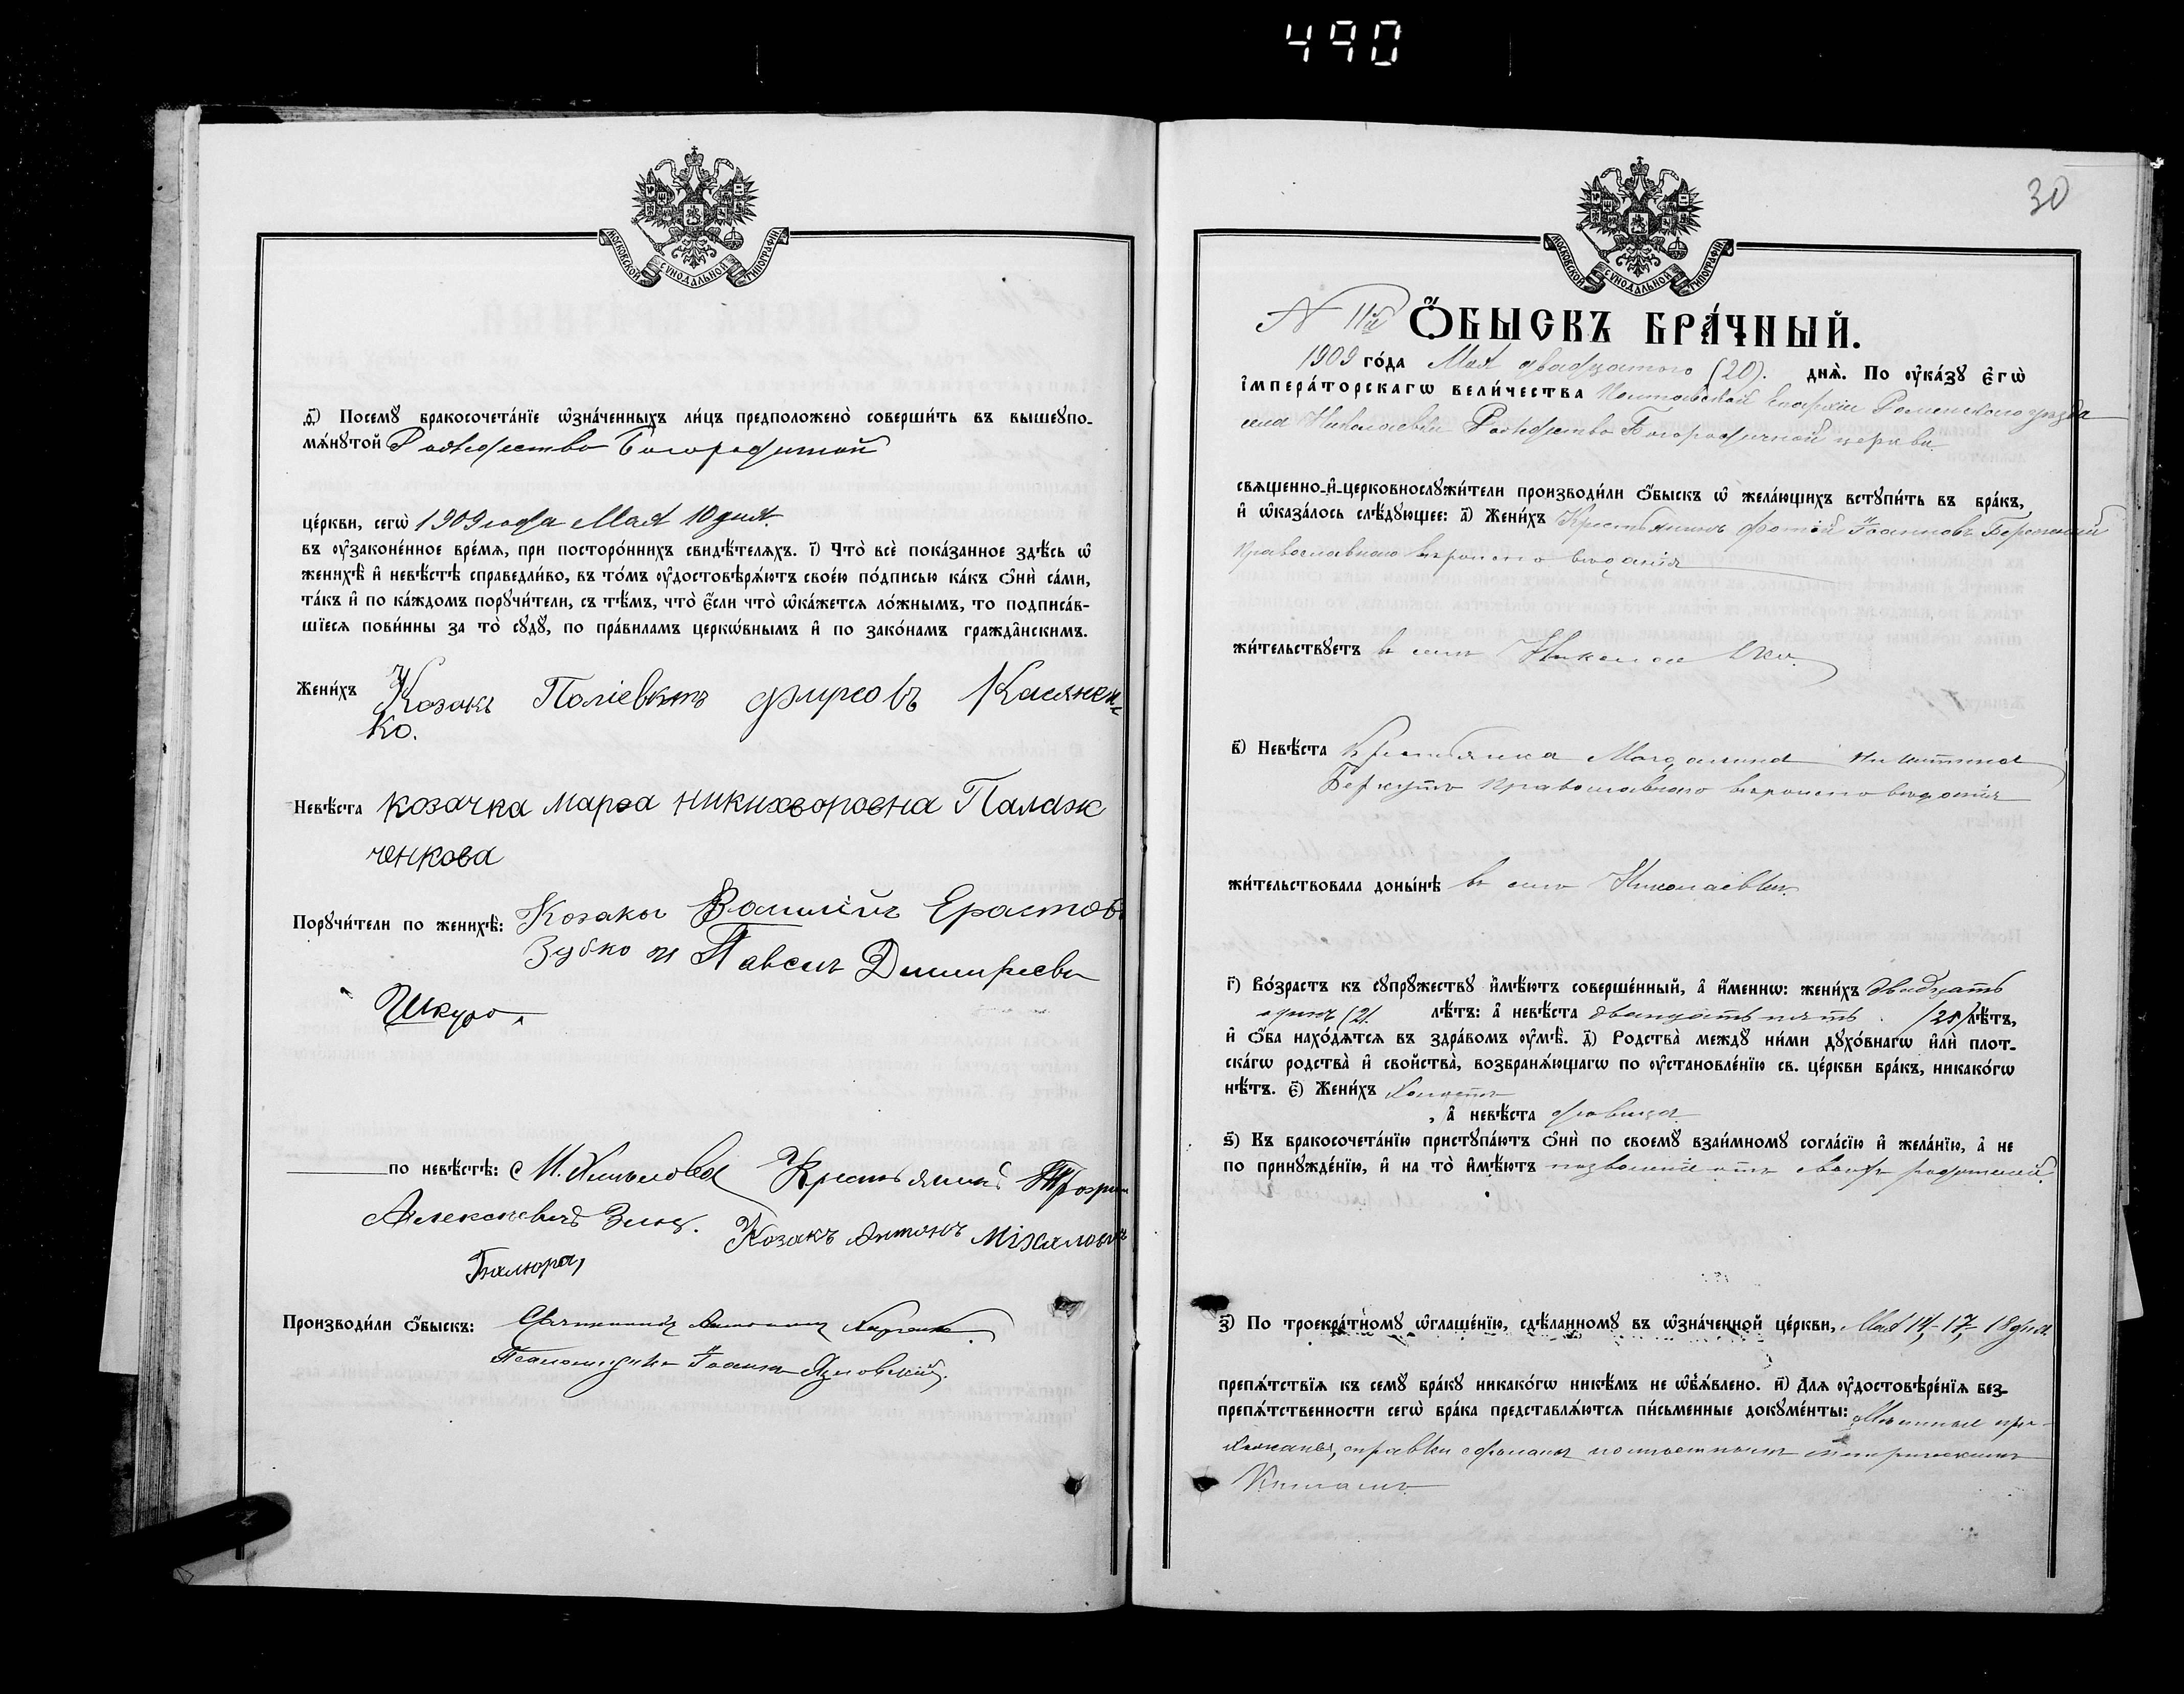 490
МОСКОВСКОЙ СѴНОДАЛЬНОЙ ТИПОГРАФІИ
ѳ҃) Посемꙋ̀ бракосочета́нїе ѡ҆зна́ченныхъ ли́цъ предположено̀ соверши́ть въ вышеꙋпо-
мѧ́нꙋтой Рождество Богородичной
це́ркви, сегѡ̀ 1909 года Мая 10 дня.
въ ᲂу҆зако́ненное вре́мѧ, при посторо́ннихъ свидѣ́телѧхъ. і҃) Что̀ всѐ пока́занное здѣ́сь ѡ҆
женихѣ̀ и҆ невѣ́стѣ справедли́во, въ то́мъ ᲂу҆достовѣрѧ́ютъ свое́ю по́дписью ка́къ ѻ҆нѝ са́ми,
та́къ и҆ по ка́ждомъ порꙋчи́тели, съ тѣ́мъ, что̀ є҆́сли что̀ ѡ҆ка́жетсѧ ло́жнымъ, то подписа́в-
шїесѧ пови́нны за то̀ сꙋдꙋ̀, по пра́виламъ церкѡ́внымъ и҆ по зако́намъ гражда̑нскимъ.
Жени́хъ Козакъ Поліевктъ Фирсовъ Касянен-
ко.
Невѣ́ста козачка Марѳа никихворовна Палаж
ченкова
Порꙋчи́тели по женихѣ̀: Козаки Василій Ерастовъ
Зубко и Павелъ Димитріевъ
Шкура
по невѣ́стѣ: с. М. Хмѣлова Крестьянинъ Трофим
Алексѣевичъ Заяц. Козакъ Антонъ Міхаловичъ
Балюра,
Производи́ли ѻ҆́быскъ: Священникъ
Псаломщикъ Іоаннъ
30
МОСКОВСКОЙ СѴНОДАЛЬНОЙ ТИПОГРАФІИ
N 11й Ѻ҆́БЫСКЪ БРА́ЧНЫЙ.
1909 го́да Мая двадцатого (20). днѧ̀. По ᲂу҆ка́зꙋ є҆гѡ̀
і҆мпера́торскагѡ вели́чества Полтавской Епархіи Роменского уѣзда
села Николаевки Рождество Богородичной церкви
свѧщенно-и҆-церковнослꙋжи́тели производи́ли ѻ҆́быскъ ѡ҆ жела́ющихъ встꙋпи́ть въ бра́къ,
и҆ ѡ҆каза́лось слѣ́дꙋющее: а҃) Жени́хъ Крестьянинъ Фотій Іоанновъ Бережный
Православного вѣроисповѣданія
жи́тельствꙋетъ в селѣ Николаевки.
в҃) Невѣ́ста Крестьянка Магдалина Никитина
Беркутъ Православного вѣроисповѣданія
жи́тельствовала доны́нѣ в селѣ Николаевки
г҃) Во́зрастъ къ сꙋпрꙋ́жествꙋ и҆мѣ́ютъ соверше́нный, а҆ и҆́меннѡ: жени́хъ двадцать
одинъ (21 лѣ́тъ: а҆ невѣ́ста двадцать пять (25) лѣ́тъ,
и҆ ѻ҆́ба нахо́дѧтсѧ въ здра́вомъ ᲂу҆мѣ̀. д҃) Родства̀ междꙋ̀ ни́ми дꙋхо́внагѡ и҆лѝ плот-
ска́гѡ родства̀ и҆ свойства̀, возбранѧ́ющагѡ по ᲂу҆становле́нїю св. це́ркви бра́къ, никако́гѡ
нѣ́тъ. є҃) Жени́хъ холостъ
, а҆ невѣ́ста дѣвица
ѕ҃) Къ бракосочета́нїю пристꙋпа́ютъ ѻ҆нѝ по своемꙋ̀ взаи́мномꙋ согла́сїю и҆ жела́нїю, а҆ не
по принꙋжде́нїю, и҆ на то̀ и҆мѣ́ютъ позволенія отъ своихъ родителей.
з҃) По троекра́тномꙋ ѡ҆глаше́нїю, сдѣ́ланномꙋ въ ѡ҆зна́ченной це́ркви, Мая 14, 17, 18 дня.
препѧ́тствїѧ къ семꙋ̀ бра́кꙋ никако́гѡ никѣ́мъ не ѡ҆бъѧ́влено. и҃) Длѧ ᲂу҆достовѣре́нїѧ без-
препѧ́тственности сегѡ̀ бра́ка представлѧ́ютсѧ пи́сьменные докꙋме́нты: Мѣстные при-
хожане, справки сдѣланы по мѣстнымъ метрическимъ
Книгамъ